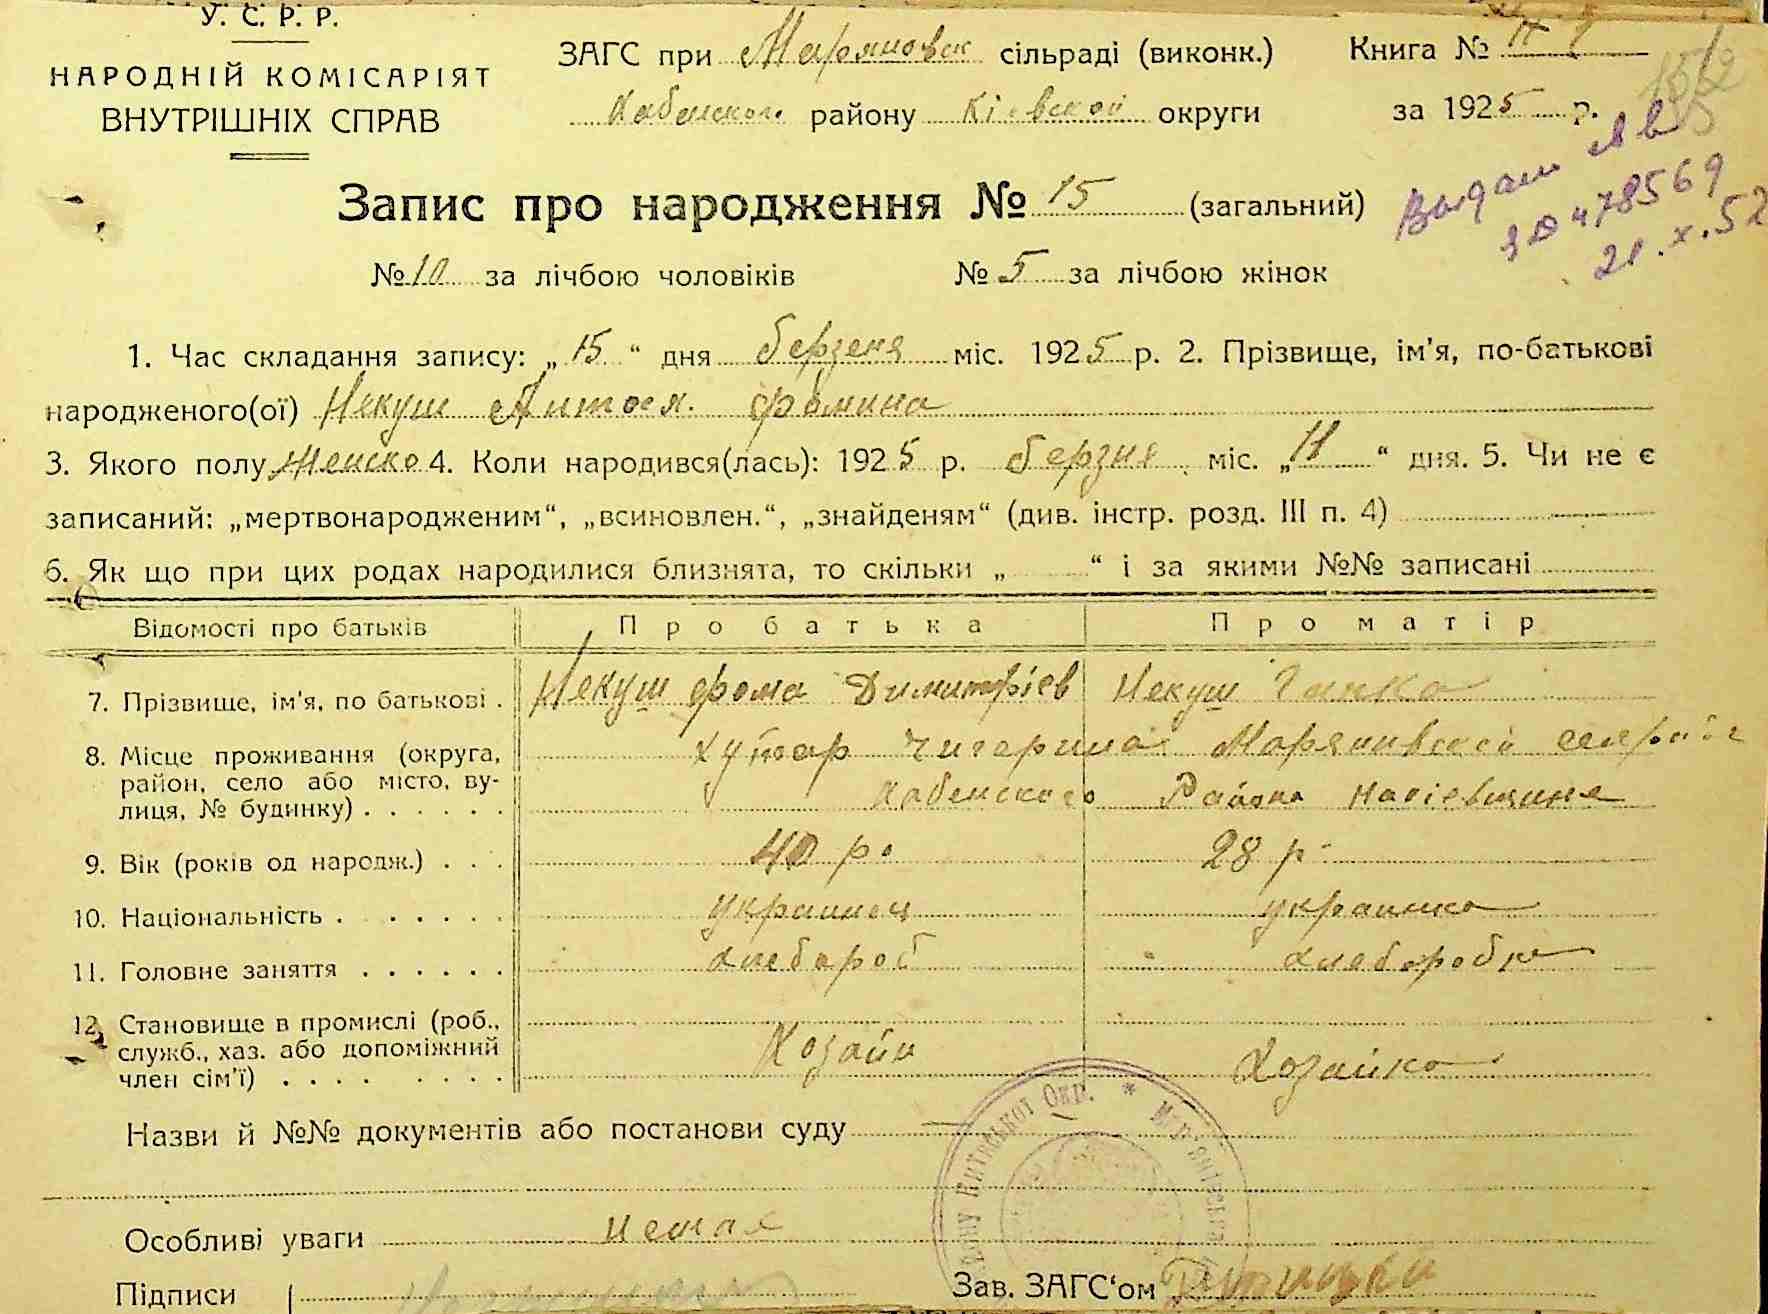 У. С. Р. Р.
НАРОДНІЙ КОМІСАРІЯТ
ВНУТРІШНІХ СПРАВ
ЗАГС при Маряновск сільраді (виконк.)
району Кіевской округи
Книга №
за 1925 р.
Выдан
478569
21.X.52
Запис про народження № 15 (загальний)
№ 10 за лічбою чоловіків № 5 за лічбою жінок
1. Час складання запису: „15“ дня берзеня міс. 1925 р. 2. Прізвище, ім'я, по-батькові
народженого(ої) Некуш Антося Фомина
3. Якого полу Женско 4. Коли народився(лась): 1925 р. берзня міс. „11“ дня. 5. Чи не є
записаний: „мертвонародженим“, „всиновлен.“, „знайденям“ (див. інстр. розд. III п. 4)
6. Як що при цих родах народилися близнята, то скільки „ “ і за якими №№ записані
Відомості про батьків Про батька Про матір
7. Прізвище, ім'я, по батькові . Некуш Фома Димитрієв Некуш Ганка
8. Місце проживання (округа, район, село або місто, вулиця, № будинку) . . . . . . хутар
Района
9. Вік (років од народж.) . . . 40 р. 28 р.
10. Національність . . . . . . украинец украинка
11. Головне заняття . . . . . . хлебороб хлеборобка
12. Становище в промислі (роб., служб., хаз. або допоміжний член сім'ї) . . . . . . . . Хозаин Хозайка
Назви й №№ документів або постанови суду
Особливі уваги немая
Підписи
Зав. ЗАГС'ом